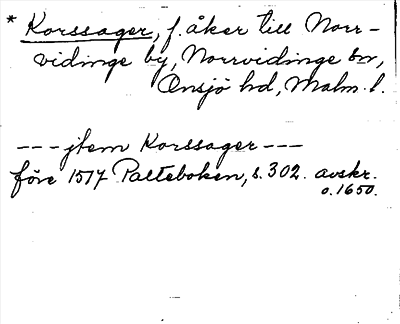 * Korssager, f. åker till Norr-
vidinge by, Norrvidinge sn,
Onsjö hd, Malm. l.
--- jtem Korssager ---
före 1517 Palteboken, s. 302. avskr.
o. 1650.